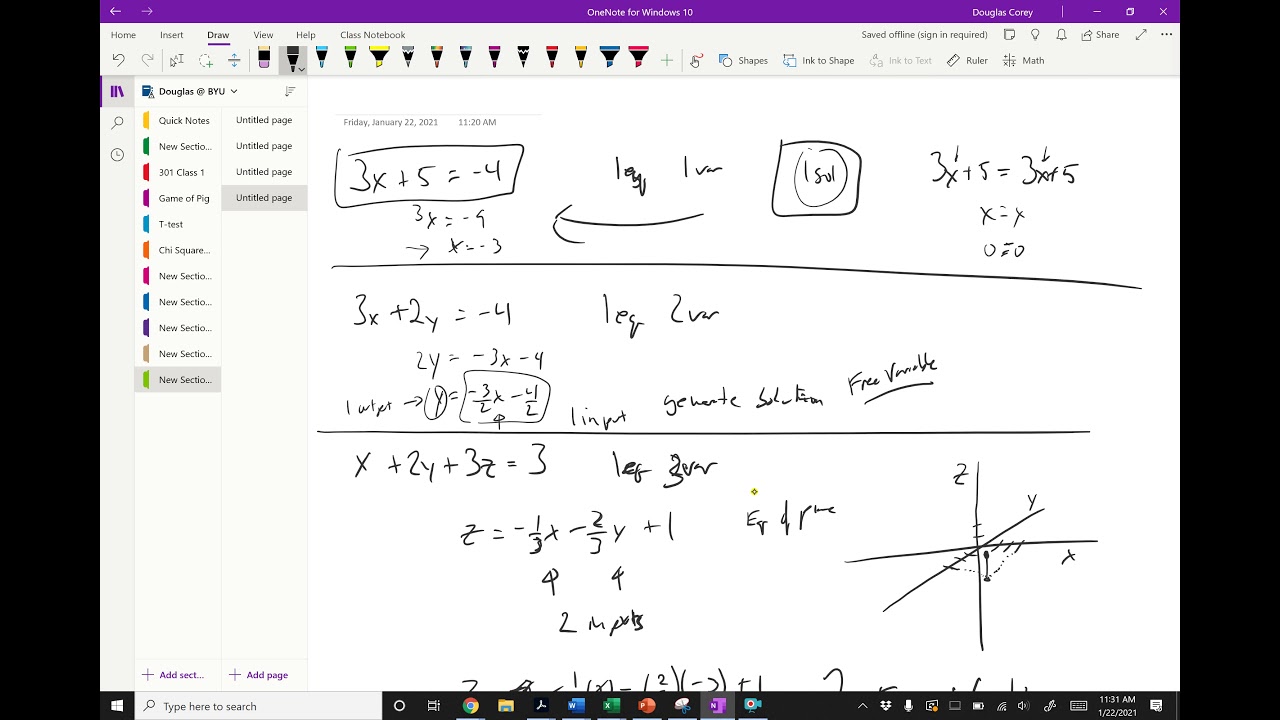 OneNote for Windows 10
Douglas Corey
Home Insert Draw View Help Class Notebook
Saved offline (sign in required) Share
Shapes Ink to Shape Ink to Text Ruler Math
Douglas @ BYU
Quick Notes
New Sectio...
301 Class 1
Game of Pig
T-test
Chi Square...
New Sectio...
New Sectio...
New Sectio...
New Sectio...
New Sectio...
Add sect...
Untitled page
Untitled page
Untitled page
Untitled page
Add page
Friday, January 22, 2021 11:20 AM
3x + 5 = -4 1 eq 1 var 1 sol 3x + 5 = 3x + 5
3x = -9 x = x
→ x = -3 0 = 0
3x + 2y = -4 1 eq 2 var
2y = -3x - 4
1 output → y = -3/2 x - 4/2 1 input generate solution Free Variable
x + 2y + 3z = 3 1 eq 3 var
z = -1/3 x - 2/3 y + 1 Eq of plane
2 inputs
z
y
x
Type here to search
11:31 AM
1/22/2021